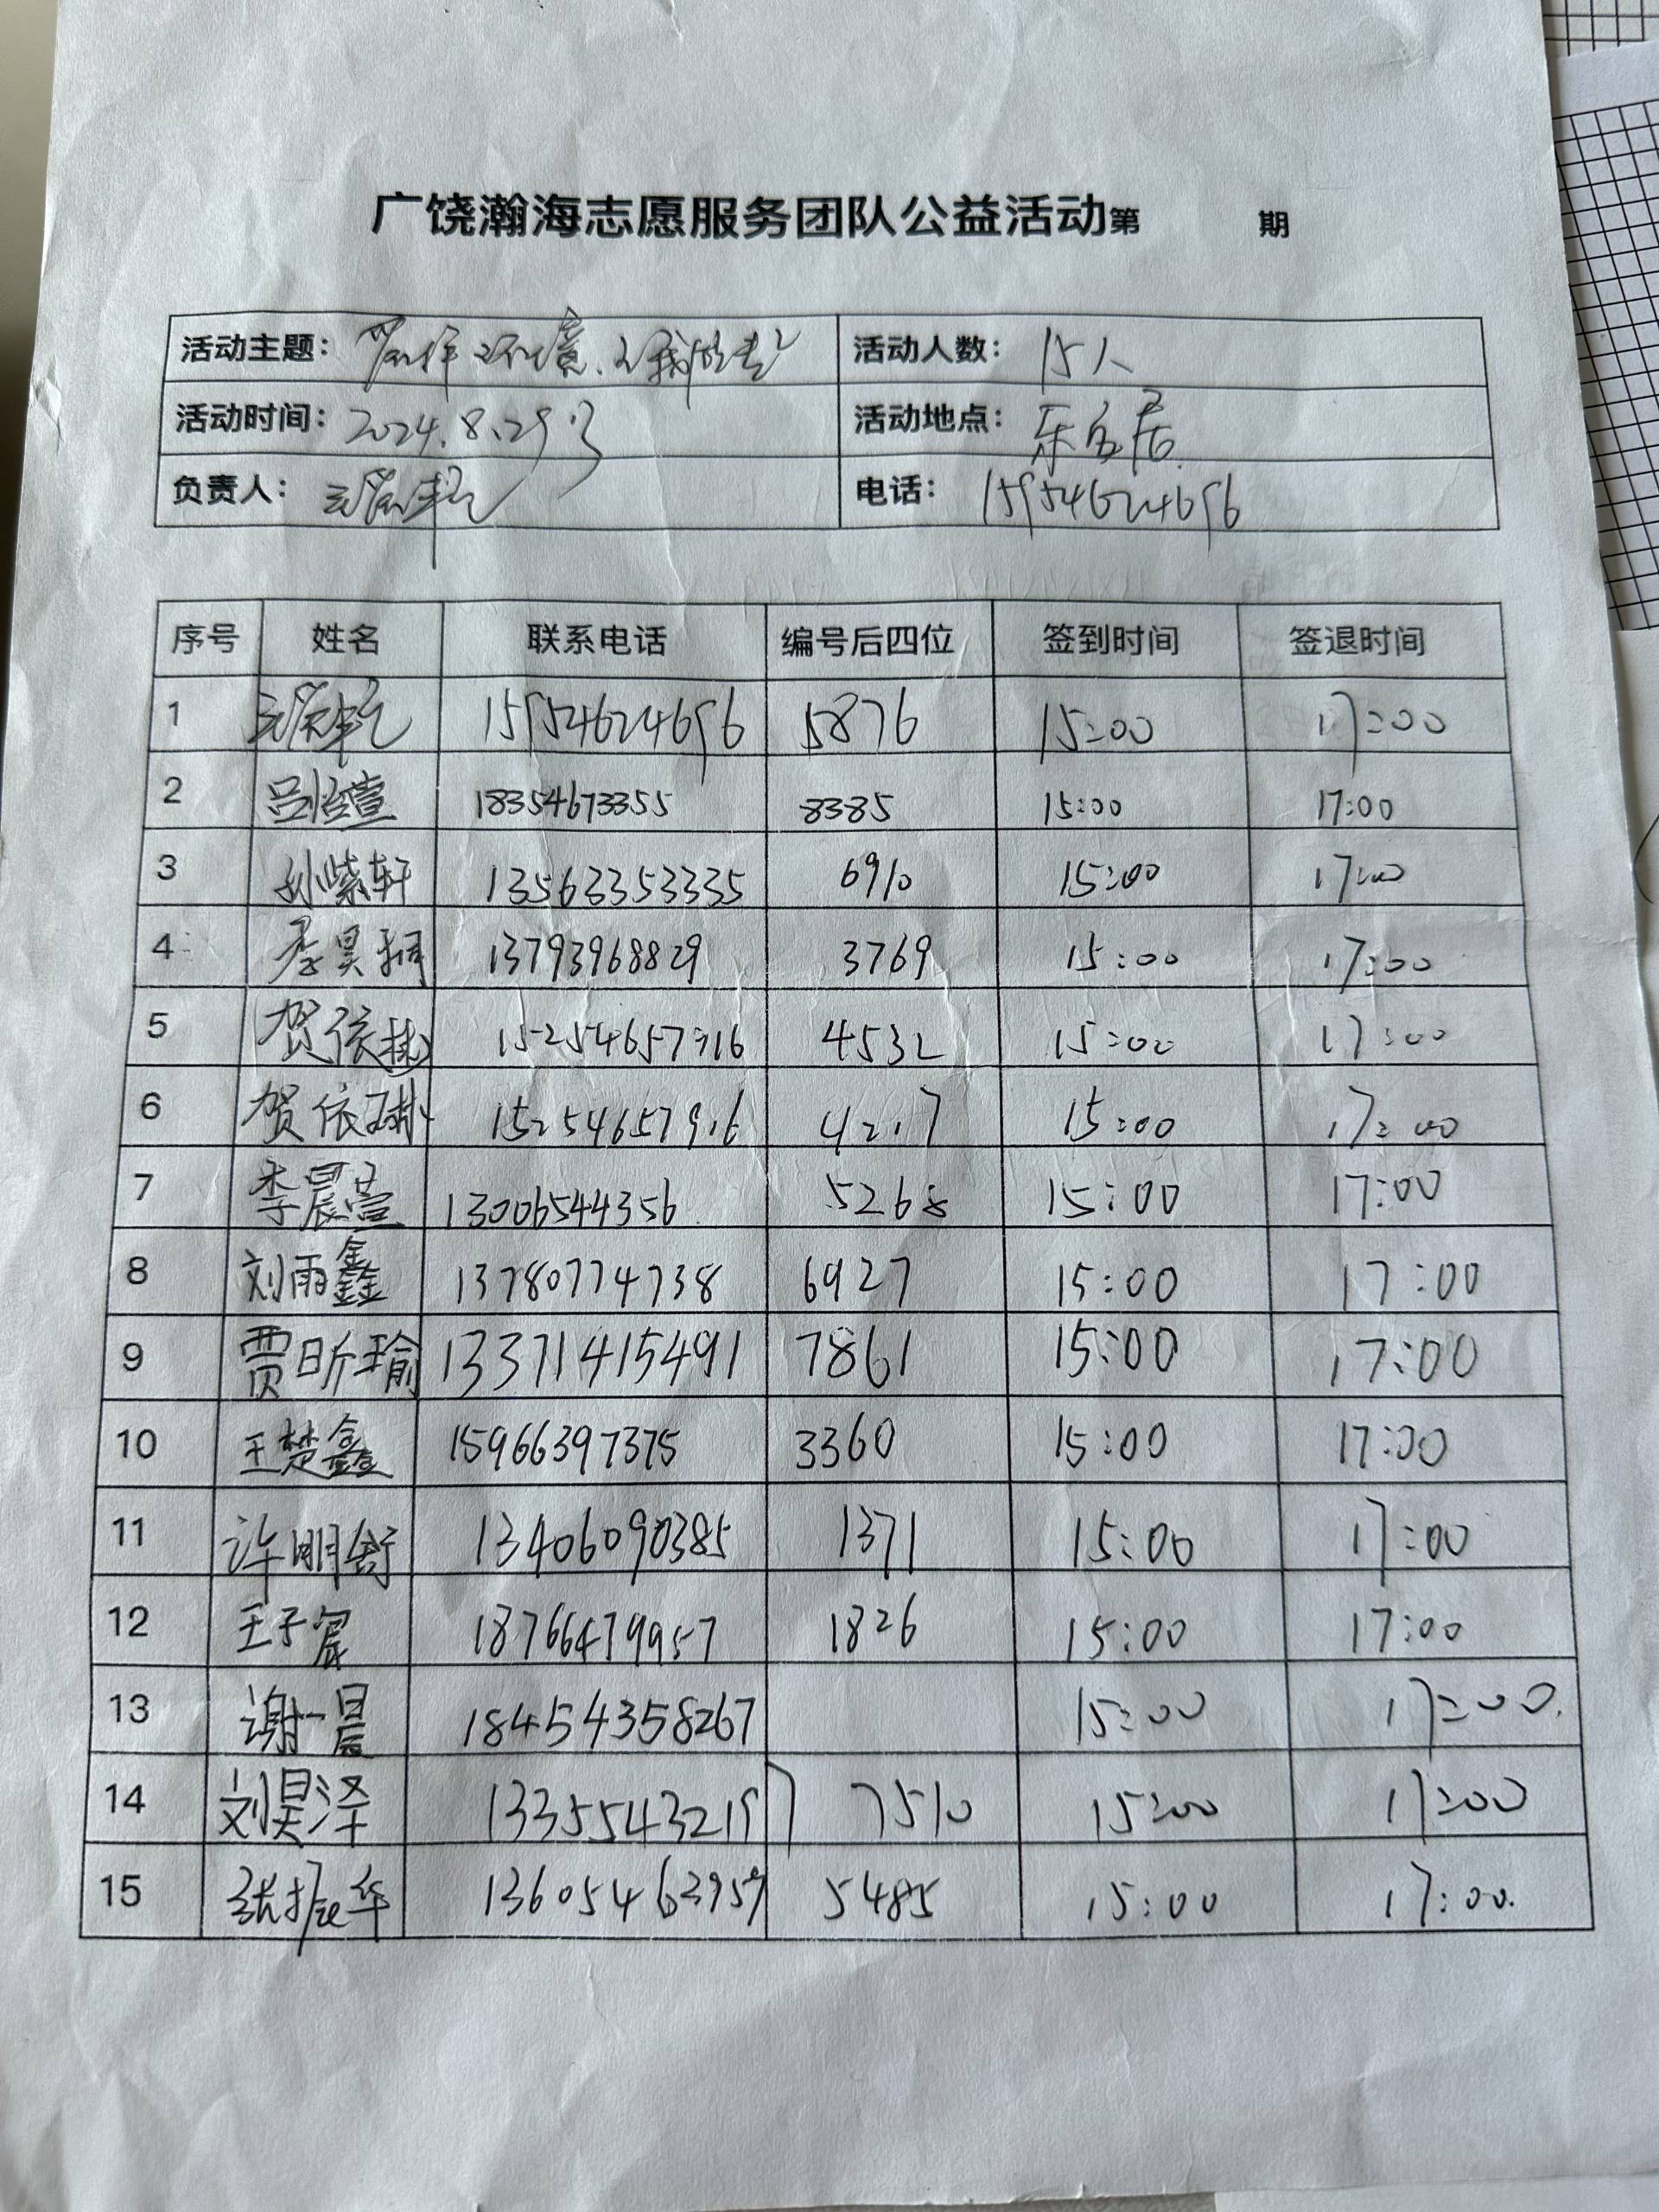 广饶瀚海志愿服务团队公益活动第 期
活动主题： 环境、从我做起 活动人数： 15人
活动时间： 2024.8.29号 活动地点： 乐安居
负责人： 电话： 15954624696
序号 姓名 联系电话 编号后四位 签到时间 签退时间
1 15954624696 5876 15:00 17:00
2 吕佳萱 18354673355 8385 15:00 17:00
3 孙紫轩 13563353335 6910 15:00 17:00
4 李昊桐 13793968829 3769 15:00 17:00
5 贺依 15254657916 4532 15:00 17:00
6 贺依琳 15254657916 4217 15:00 17:00
7 李晨萱 13006544356 5268 15:00 17:00
8 刘雨鑫 13780774738 6927 15:00 17:00
9 贾昕瑜 13371415491 7861 15:00 17:00
10 王楚鑫 15966397375 3360 15:00 17:00
11 许明舒 13406090385 1371 15:00 17:00
12 王子宸 18766479957 1826 15:00 17:00
13 谢一晨 18454358267 15:00 17:00
14 刘昊泽 13355432197 7510 15:00 17:00
15 张振华 13605463957 5485 15:00 17:00.